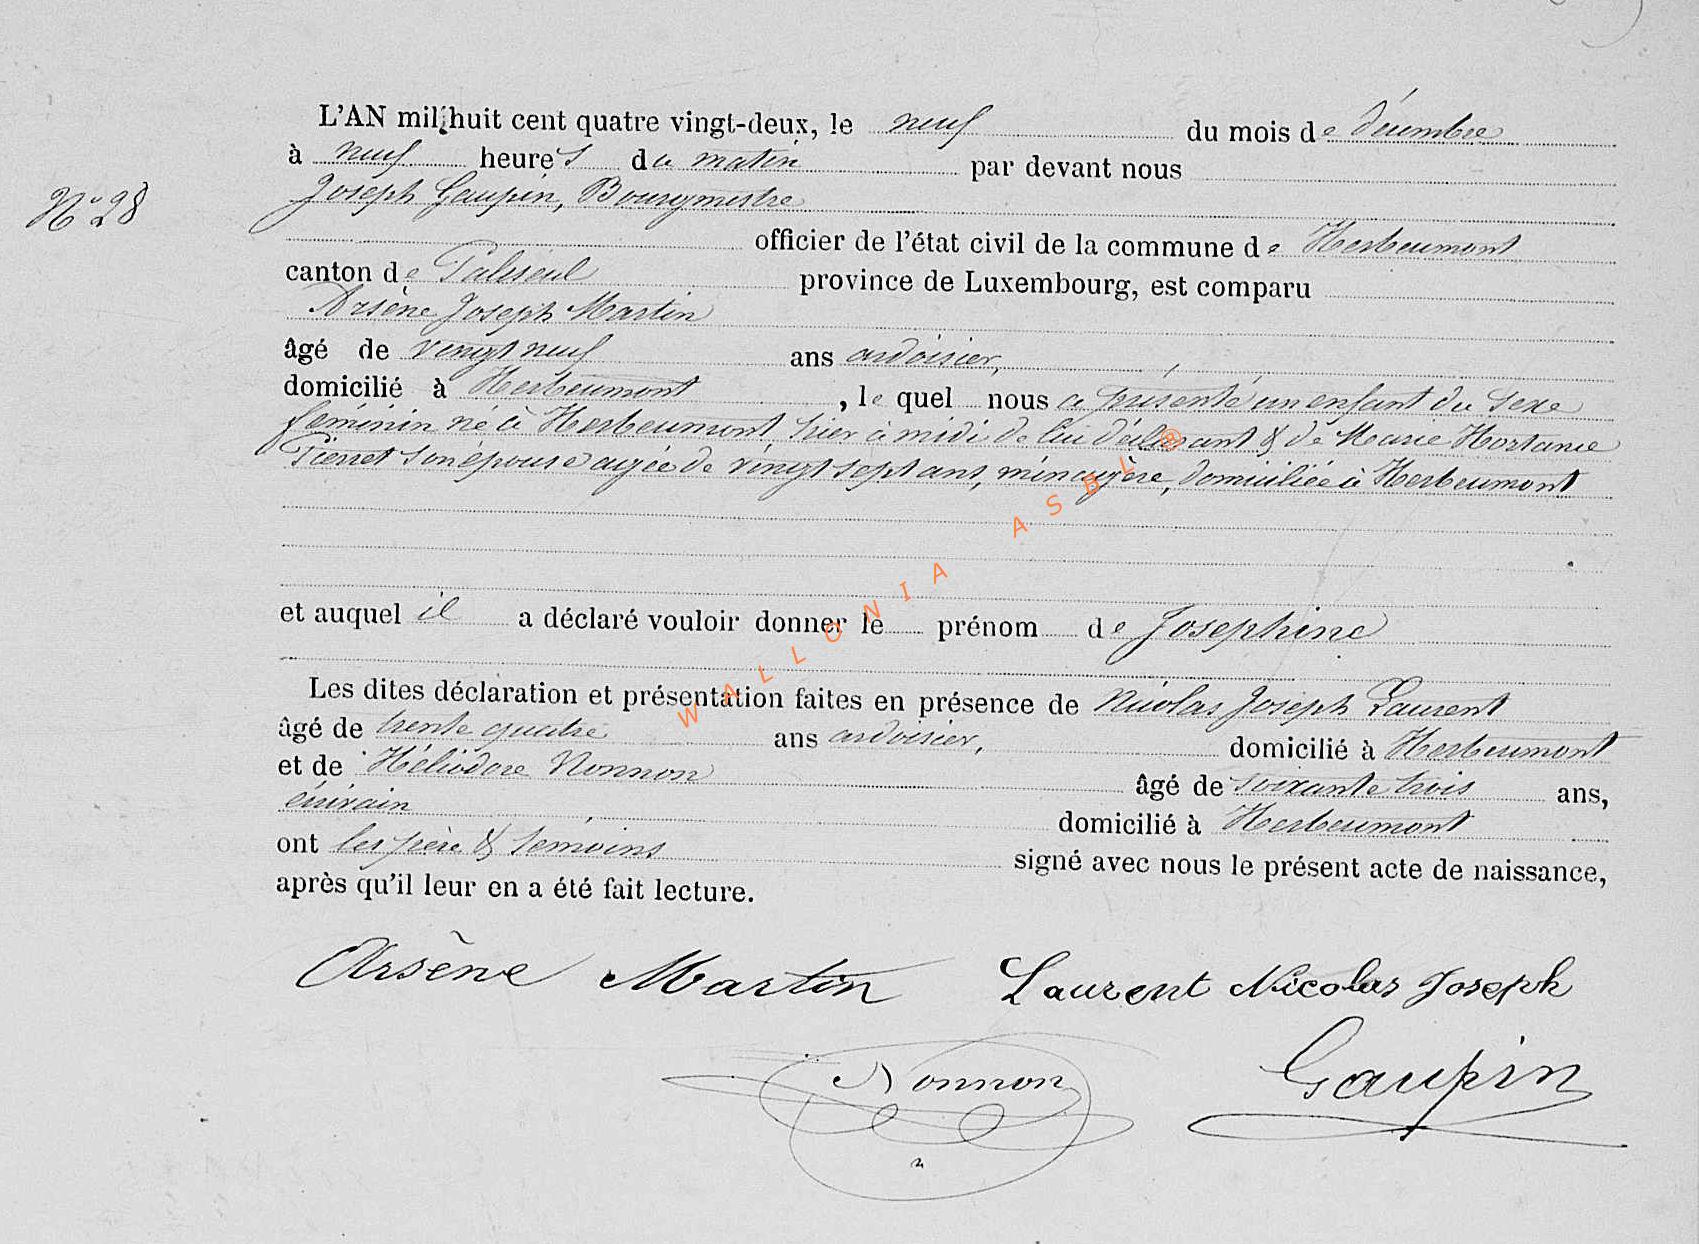 L'AN mil huit cent quatre vingt-deux, le neuf du mois de décembre
à neuf heures du matin par devant nous
N° 28
Joseph Gaupin, Bourgmestre
officier de l'état civil de la commune de Herbeumont
canton de Paliseul province de Luxembourg, est comparu
Arsène Joseph Martin
âgé de vingt neuf ans ardoisier,
domicilié à Herbeumont, le quel nous a présenté un enfant du sexe
féminin né à Herbeumont, hier à midi de lui déclarant & de Marie Hortance
Pierret son épouse agée de vingt sept ans, ménagère, domiciliée à Herbeumont
et auquel il a déclaré vouloir donner le prénom de Josephine
Les dites déclaration et présentation faites en présence de Nicolas Joseph Laurent
âgé de trente quatre ans ardoisier, domicilié à Herbeumont
et de Héliodore Nonnon âgé de soixante trois ans,
écrivain domicilié à Herbeumont
ont les père & témoins signé avec nous le présent acte de naissance,
après qu'il leur en a été fait lecture.
Arsène Martin Laurent Nicolas Joseph
Nonnon Gaupin
WALLONIA ASBL ®